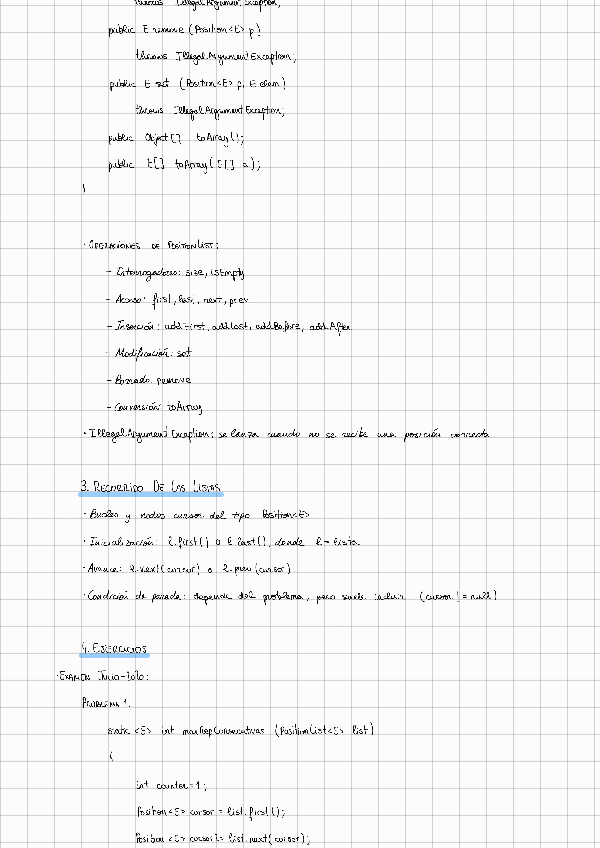 throws IllegalArgumentException;
public E remove (Position<E> p)
throws IllegalArgumentException;
public E set (Position<E> p, E elem)
throws IllegalArgumentException;
public Object[] toArray();
public E[] toArray(E[] a);
}
· OPERACIONES DE POSITIONLIST:
- Interrogadores: size, isEmpty
- Acceso: first, last, next, prev
- Inserción: addFirst, addLast, addBefore, addAfter
- Modificación: set
- Borrado: remove
- Conversión: toArray
· IllegalArgumentException: se lanza cuando no se recibe una posición correcta
3. RECORRIDO DE LAS LISTAS
· Bucles y nodos cursor del tipo Position<E>
· Inicialización: l.first() o l.last(), donde l = lista
· Avance: l.next(cursor) o l.prev(cursor)
· Condición de parada: depende del problema, pero suele incluir (cursor != null)
4. EJERCICIOS
· EXAMEN JULIO-2020:
PROBLEMA 1.
static <E> int maxRepConsecutivas (PositionList<E> list)
{
int counter=1;
Position<E> cursor = list.first();
Position <E> cursor2= list.next(cursor);